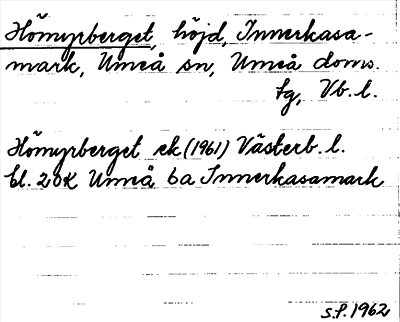 Hömyrberget, höjd, Innerkasa-
mark, Umeå sn, Umeå doms.
tg, Vb. l.
Hömyrberget ek (1961) Västerb. l.
bl. 20K Umeå 6a Innerkasamark
S.P. 1962